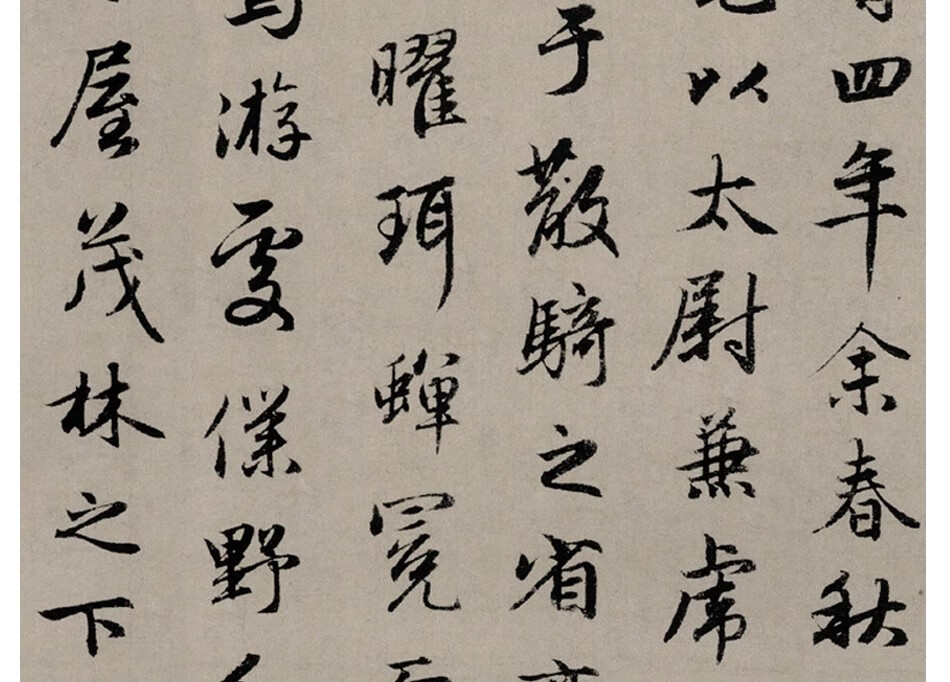 四年余春秋
以太尉兼虎
于散騎之省
曜珥蟬冕
游處僕野
屋茂林之下